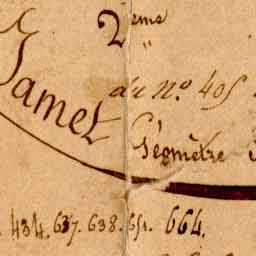 2eme
"
Jamet
du no. 405
Géomètre
434. 637. 638. 651. 664.